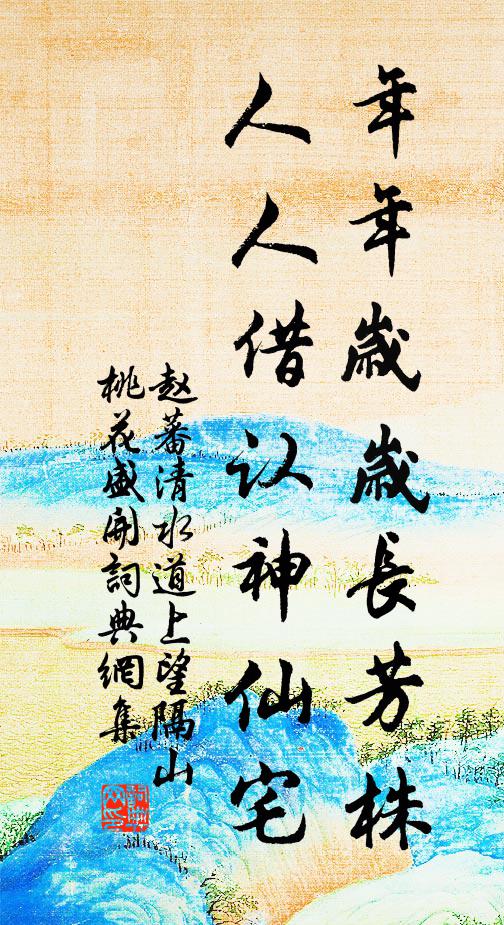 年年歳歳長芳株
人人借认神仙宅
赵蕃清水道上望隔山
桃花盛開詞典網集